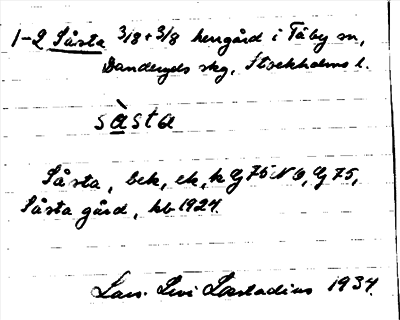 1-2 Såsta 3/8+3/8 herrgård i Täby sn,
Danderyds skg, Stockholms l.
sàsta
Såsta, bek, ek, k G 75 N Ö, G 75,
Såsta gård, kb 1924.
Lars Levi Læstadius 1934